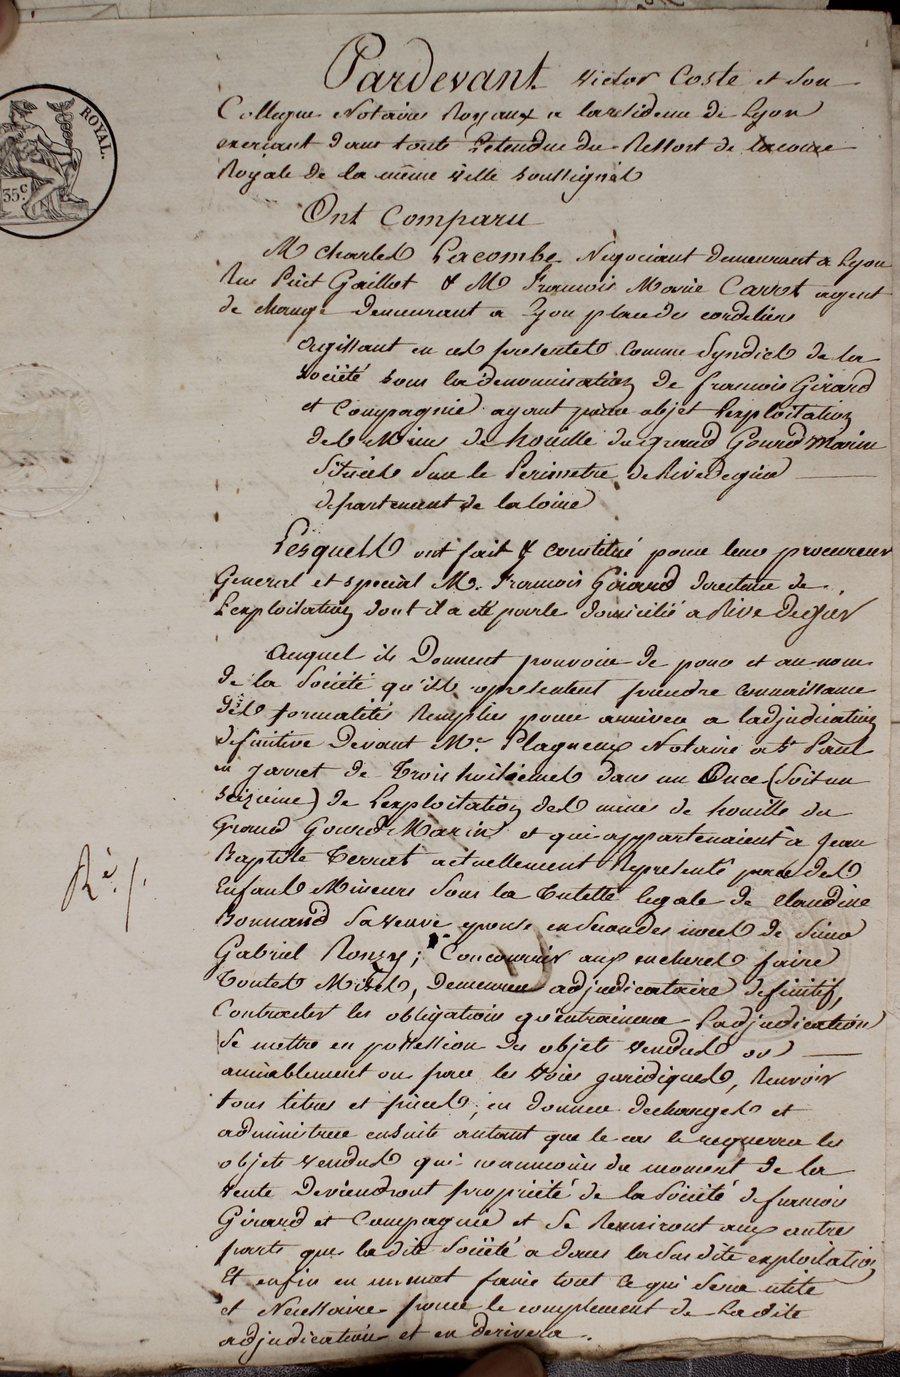 Pardevant Victor Coste et son
Collegue Notaires Royaux a la residence de Lyon
exercant dans toute l'etendue du Ressort de la cour
Royale de la même ville soussignés
Ont Comparu
M Charles Lacombe Negociant demeurant a Lyon
Rue Puit Gaillot & M Francois Marie Carret agent
de change demeurant a Lyon place des cordeliers
agissant en ces presentes comme Syndics de la
Société sous la denomination de francois Girard
et Compagnie ayant pour objet l'exploitation
des Mines de houille du grand Gourd Marin
Situées Sur le Perimetre de Rive de gier
departement de la loire
Lesquels ont fait & constitué pour leur procureur
General et special M. Francois Girard directeur de
l'exploitation dont il a été parlé domicilié a Rive de gier
Auquel ils Donnent pouvoir de pour et au nom
de la Société qu'ils representent prendre connaissance
des formalités Remplies pour arriver a l'adjudication
definitive Devant Me Plagneux Notaire a St Paul
en Jarret de Trois huitiemes dans un Once (soit un
seizieme) de l'exploitation des mines de houille du
Grand Gourd Marin et qui appartenaient a Jean
Baptiste Terrat actuellement Representé par des
Enfants Mineurs Sous la Tutelle legale de Claudine
Bonnand Sa veuve epouse en secondes noces de Sieur
Gabriel ; Concourir aux encheres faire
Toutes Mises, Demeurer adjudicataire definitif,
Contracter les obligations qu'entrainera l'adjudication
Se mettre en possession des objets vendus ou
amiablement ou par les voies juridiques, Recevoir
tous titres et pieces, en donner decharges et
administrer ensuite autant que le cas le requerra les
objets vendus qui neanmoins du moment de la
vente Deviendront propriété de la Société de francois
Girard et Compagnie et Se Reuniront aux autres
parts que la dite Société a dans la Sus dite exploitation
Et enfin en un mot faire tout ce qui Sera utile
et Necessaire pour le complement de la dite
adjudication et en derivera.
Ré./.
ROYAL.
35 c.